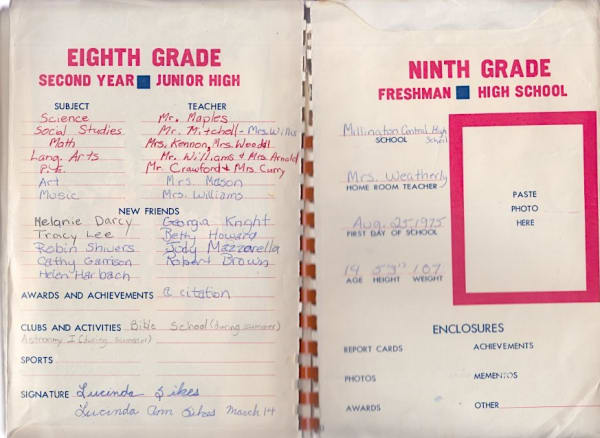 EIGHTH GRADE
SECOND YEAR JUNIOR HIGH
SUBJECT TEACHER
Science Mr. Maples
Social Studies Mr. Mitchell - Mrs. Willis
Math Mrs. Kennon, Mrs. Weddl
Lang. Arts Mr. Williams & Mrs. Arnold
P.E. Mr Crawford & Mrs. Curry
Art Mrs. Mason
Music Mrs. Williams
NEW FRIENDS
Melanie Darcy Georgia Knight
Tracy Lee Betty Howard
Robin Shivers Jody Mazzarella
Cathy Garrison Robert Brown
Helen Harbach
AWARDS AND ACHIEVEMENTS a citation
CLUBS AND ACTIVITIES Bible School (during summer)
Astronomy I (during summer)
SPORTS
SIGNATURE Lucinda Sikes
Lucinda Ann Sikes March 14
NINTH GRADE
FRESHMAN HIGH SCHOOL
Millington Central High
School
SCHOOL
Mrs. Weatherly
HOME ROOM TEACHER
Aug. 25, 1975
FIRST DAY OF SCHOOL
14 5'3" 107
AGE HEIGHT WEIGHT
PASTE
PHOTO
HERE
ENCLOSURES
REPORT CARDS ACHIEVEMENTS
PHOTOS MEMENTOS
AWARDS OTHER